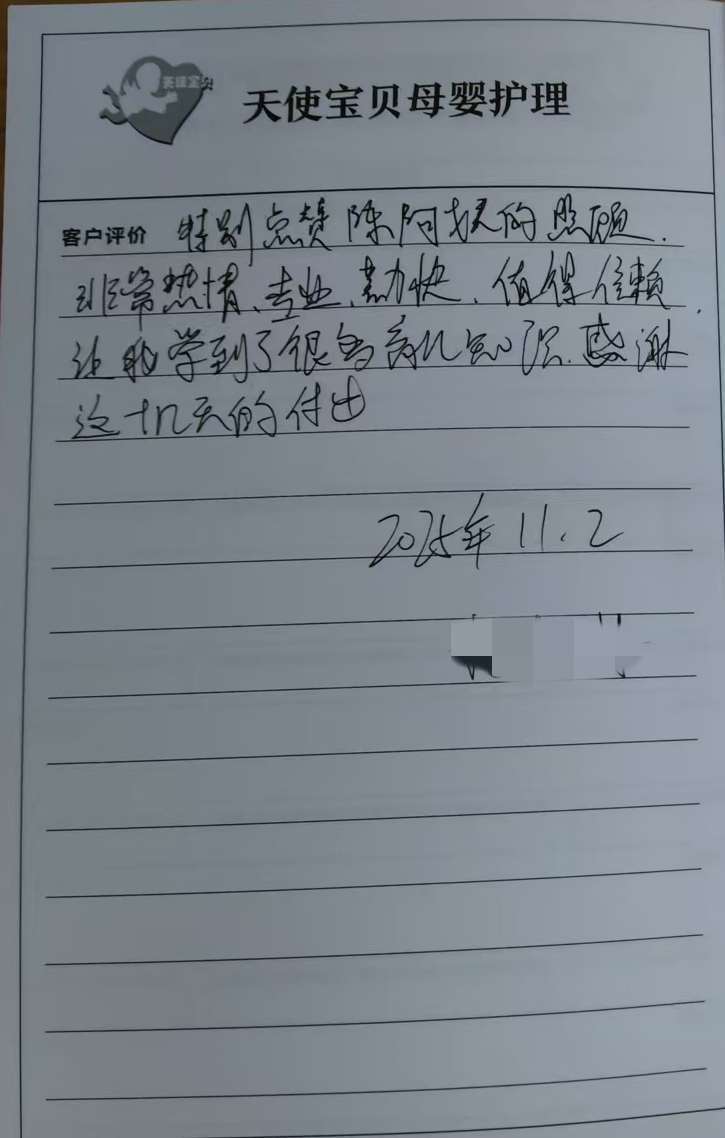 天使宝贝
天使宝贝母婴护理
客户评价 特别点赞陈阿姨的照顾.
非常热情、专业、勤快、值得信赖.
让我学到了很多育儿知识.感谢
这十几天的付出
2025年 11.2